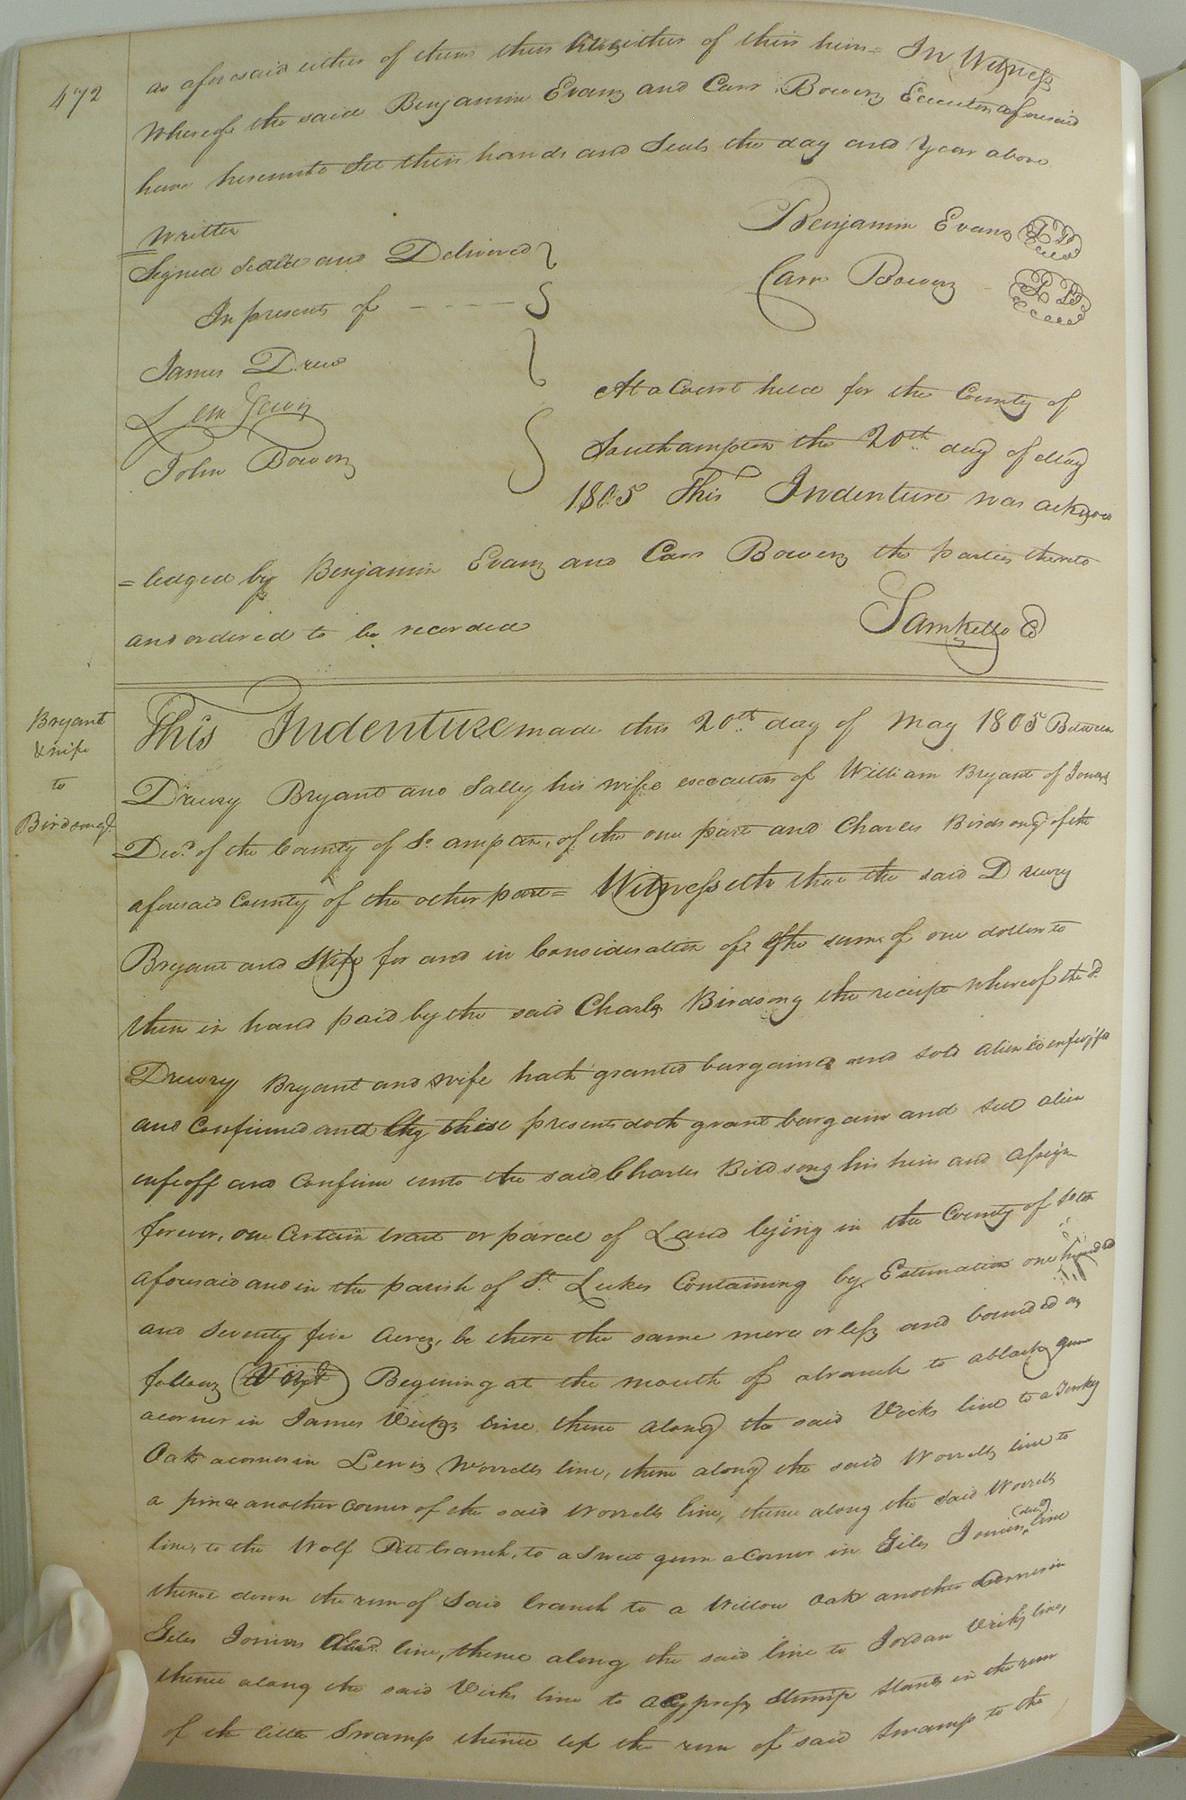 472
as aforesaid either of them their heirs either of their heirs = In Witness
Whereof the said Benjamin Evans and Carr Bowers Executors aforesaid
have hereunto Set their hands and Seals the day and Year above
Written
Benjamin Evans LS
Signed Sealed and Delivered
Carr Bowers LS
In presents of
James Drew
Lem Jewin
John Bowers
At a Court held for the County of
Southampton the 20th day of May
1805 This Indenture was acknow
=ledged by Benjamin Evans and Carr Bowers the parties thereto
and ordered to be recorded
Sam Kello C
Bryant
& wife
to
Birdsong
This Indenture made this 20th day of May 1805 Between
Drewry Bryant and Sally his wife executors of William Bryant of Jones
Decd. of the County of So. ampton, of the one part and Charles Birdsong of the
aforesaid County of the other part = Witnesseth that the said Drewry
Bryant and Wife for and in Consideration of the sum of one dollar to
them in hand paid by the said Charles Birdsong the receipt whereof the sd.
Drewry Bryant and wife hath granted bargained and sold alien'd enfeoff'd
and Confirmed and by these presents doth grant bargain and sell alien
enfeoff and Confirm unto the said Charles Birdsong his heirs and assigns
forever, one Certain tract or parcel of Land lying in the County of
aforesaid and in the parish of St. Lukes Containing by Estimation one hundred
and Seventy five Acres, be there the same more or less and bounded as
follows (Vizt) Begining at the mouth of a branch to a black gum
a corner in James Vicks line thence along the said Vicks line to a Turkey
Oak a corner in Lewis Worrells line, thence along the said Worrells line to
a pine another corner of the said Worrells line, thence along the said Worrells
line, to the Wolf Pitt branch, to a Sweet gum a Corner in Giles Joiners (decd) line
thence down the run of Said branch to a Willow Oak another Corner in
Giles Joiners decd. line, thence along the said line to Jordan Vicks line,
thence along the said Vicks line to a Cypress Stump stands in the run
of the little Swamp thence up the run of said Swamp to the